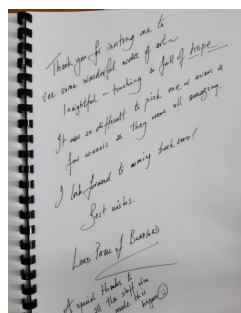 Thank you for inviting me to
see some wonderful works of art -
Insightful - touching & full of hope
It was so difficult to pick one or even a
few words as they were all amazing.
I look forward to coming back soon!
Best wishes.
LORD PATEL of BRADFORD
A special thanks to
all the staff who
made this
happen ☺